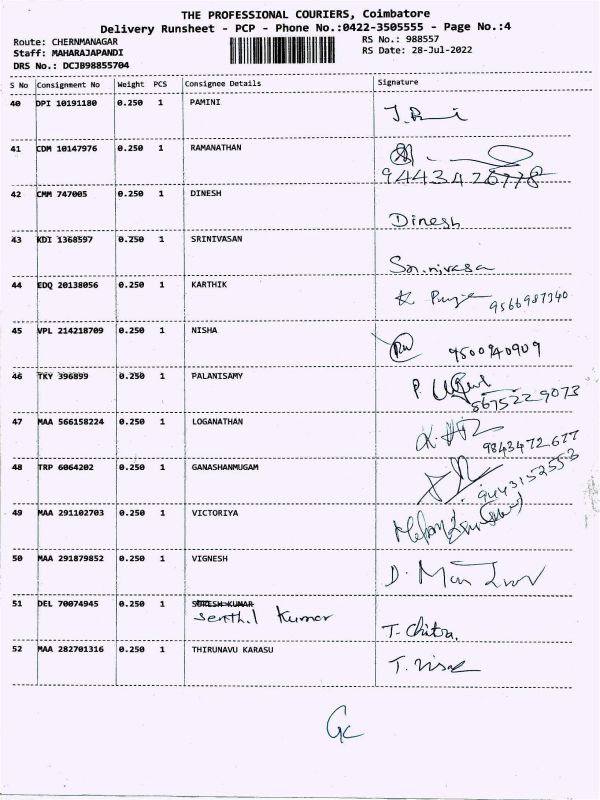 THE PROFESSIONAL COURIERS, Coimbatore
Delivery Runsheet - PCP - Phone No.:0422-3505555 - Page No.:4
Route: CHERNMANAGAR RS No.: 988557
Staff: MAHARAJAPANDI RS Date: 28-Jul-2022
DRS No.: DCJB98855704
S No Consignment No Weight PCS Consignee Details Signature
40 DPI 10191180 0.250 1 PAMINI
41 CDM 10147976 0.250 1 RAMANATHAN
42 CMM 747005 0.250 1 DINESH Dinesh
43 KDI 1368597 0.250 1 SRINIVASAN Srinivasa
44 EDQ 20138056 0.250 1 KARTHIK 9566987340
45 VPL 214218709 0.250 1 NISHA 9500940909
46 TKY 396899 0.250 1 PALANISAMY 8675229073
47 MAA 566158224 0.250 1 LOGANATHAN 9843472677
48 TRP 6064202 0.250 1 GANASHANMUGAM 9443152553
49 MAA 291102703 0.250 1 VICTORIYA
50 MAA 291879852 0.250 1 VIGNESH
51 DEL 70074945 0.250 1 SURESH KUMAR
Senthil Kumar T. Chitra.
52 MAA 282701316 0.250 1 THIRUNAVU KARASU